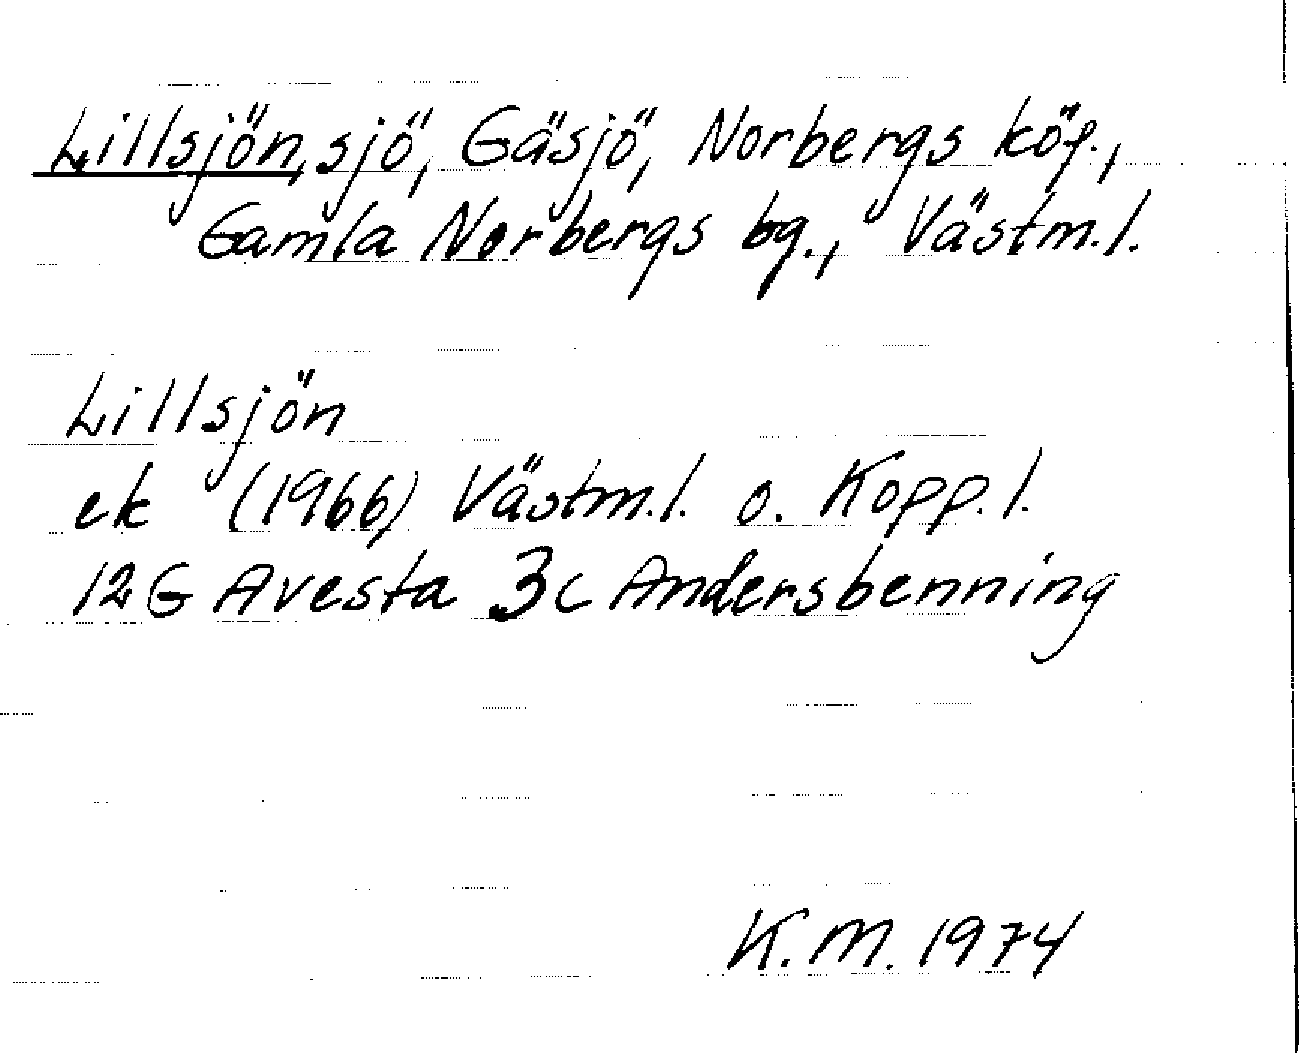 Lillsjön, sjö, Gäsjö, Norbergs köp.,
Gamla Norbergs bg., Västm.l.
Lillsjön
ek (1966) Västm.l. o. Kopp.l.
12G Avesta 3c Andersbenning
K.M. 1974